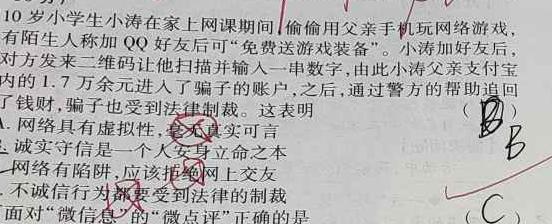 10 岁小学生小涛在家上网课期间,偷偷用父亲手机玩网络游戏,
有陌生人称加 QQ 好友后可“免费送游戏装备”。小涛加好友后,
对方发来二维码让他扫描并输入一串数字,由此小涛父亲支付宝
内的 1.7 万余元进入了骗子的账户,之后,通过警方的帮助追回
了钱财,骗子也受到法律制裁。这表明 ( B )
B
A. 网络具有虚拟性,毫无真实可言
诚实守信是一个人安身立命之本
网络有陷阱,应该拒绝网上交友
. 不诚信行为都要受到法律的制裁
面对“微信息”的“微点评”正确的是 ( C )